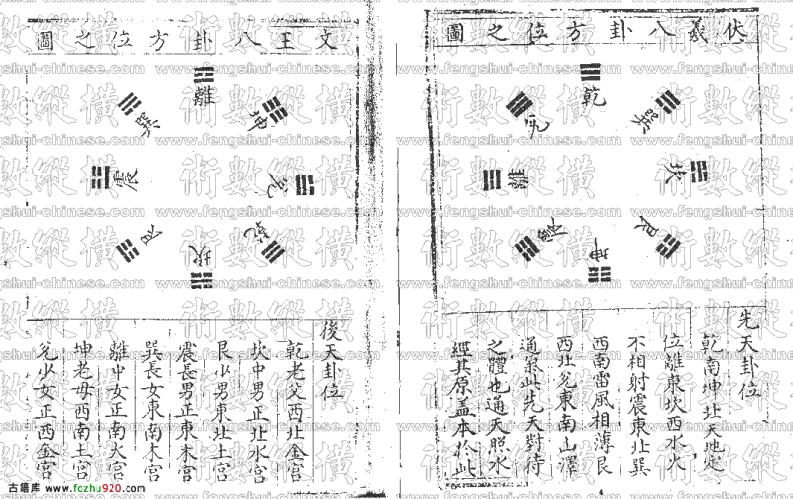 伏羲八卦方位之圖
乾
巽
坎
艮
坤
震
離
兌
先天卦位
乾南坤北天地定
位離東坎西水火
不相射震東北巽
西南雷風相薄艮
西北兌東南山澤
通氣此先天對待
之體也通天照水
經其原蓋本於此
文王八卦方位之圖
離
坤
兌
乾
坎
艮
震
巽
後天卦位
乾老父西北金宮
坎中男正北水宮
艮少男東北土宮
震長男正東木宮
巽長女東南木宮
離中女正南火宮
坤老母西南土宮
兌少女正西金宮
術數縱橫
www.fengshui-chinese.com
古籍库 www.fozhu920.com